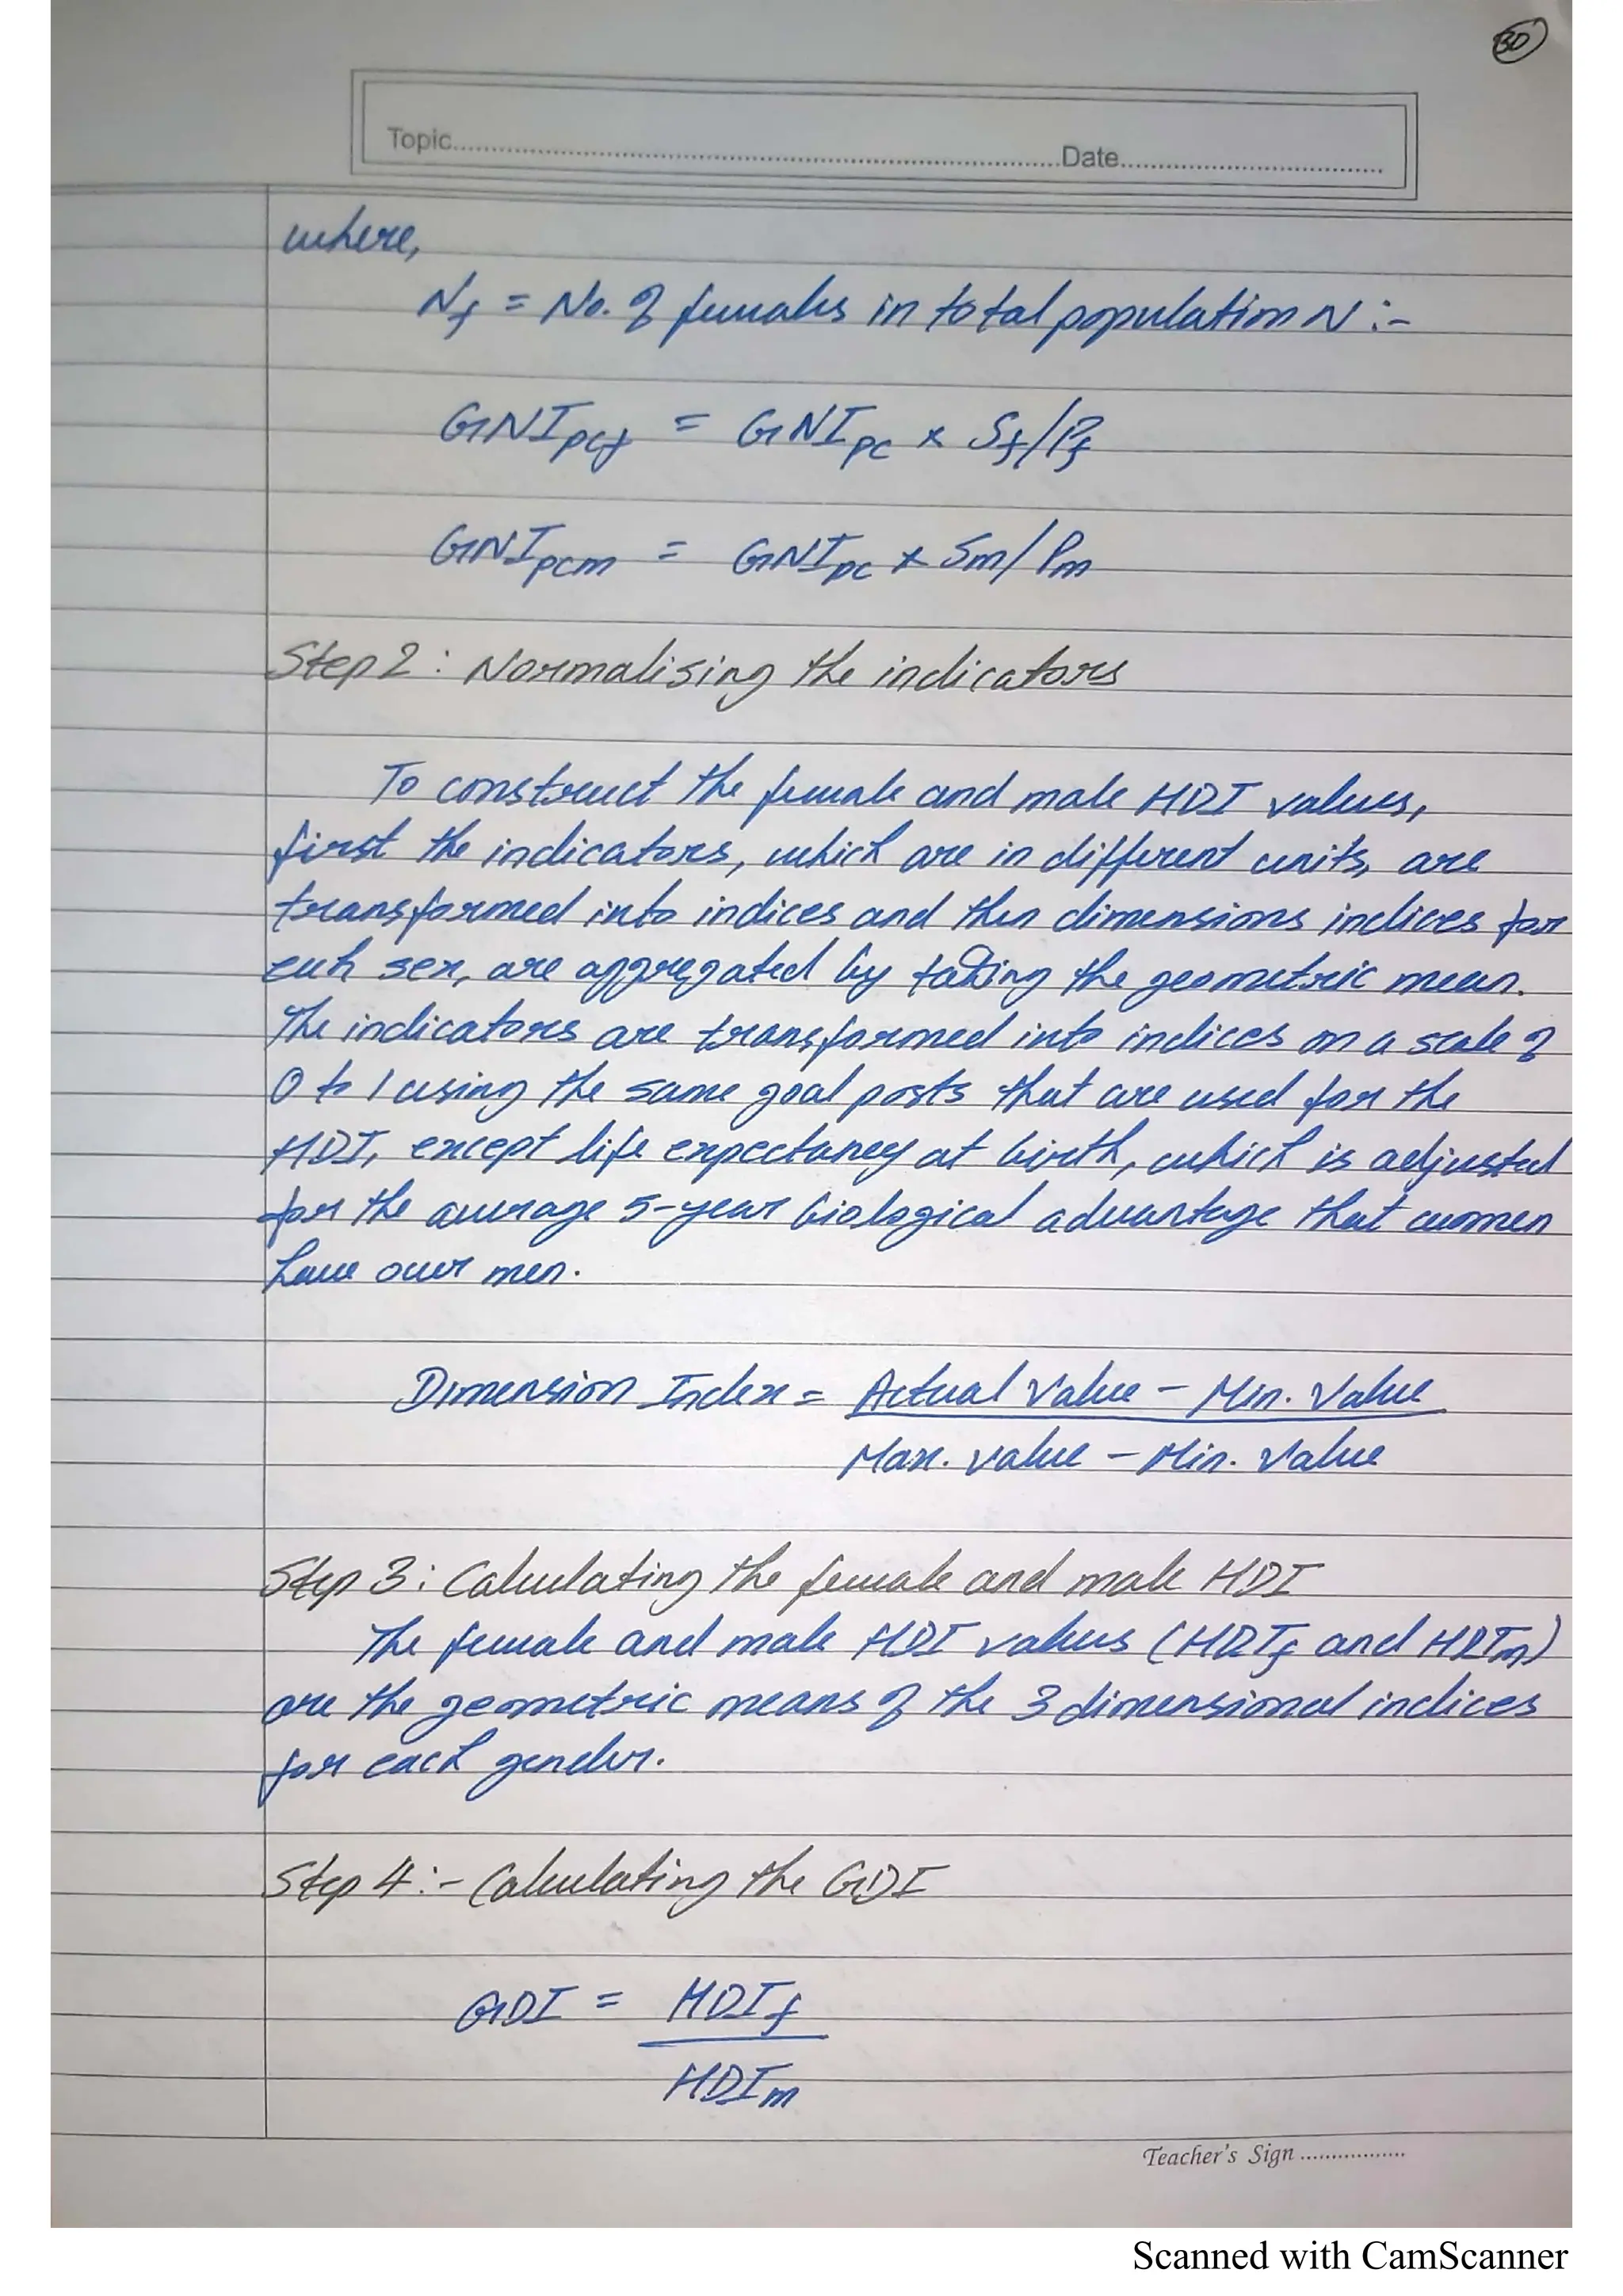 30
Topic...........................Date...........................
where,
Nf = No. of females in total population N :-
GNIpcf = GNIpc × Sf/Pf
GNIpcm = GNIpc × Sm/Pm
Step 2 : Normalising the indicators
To construct the female and male HDI values,
first the indicators, which are in different units, are
transformed into indices and then dimensions indices for
each sex, are aggregated by taking the geometric mean.
The indicators are transformed into indices on a scale of
0 to 1 using the same goal posts that are used for the
HDI, except life expectancy at birth, which is adjusted
for the average 5-year biological advantage that women
have over men.
Dimension Index = Actual Value - Min. Value
Max. value - Min. Value
Step 3 : Calculating the female and male HDI
The female and male HDI values (HDIf and HDIm)
are the geometric means of the 3 dimensional indices
for each gender.
Step 4 :- Calculating the GDI
GDI = HDIf
HDIm
Teacher's Sign ..................
Scanned with CamScanner